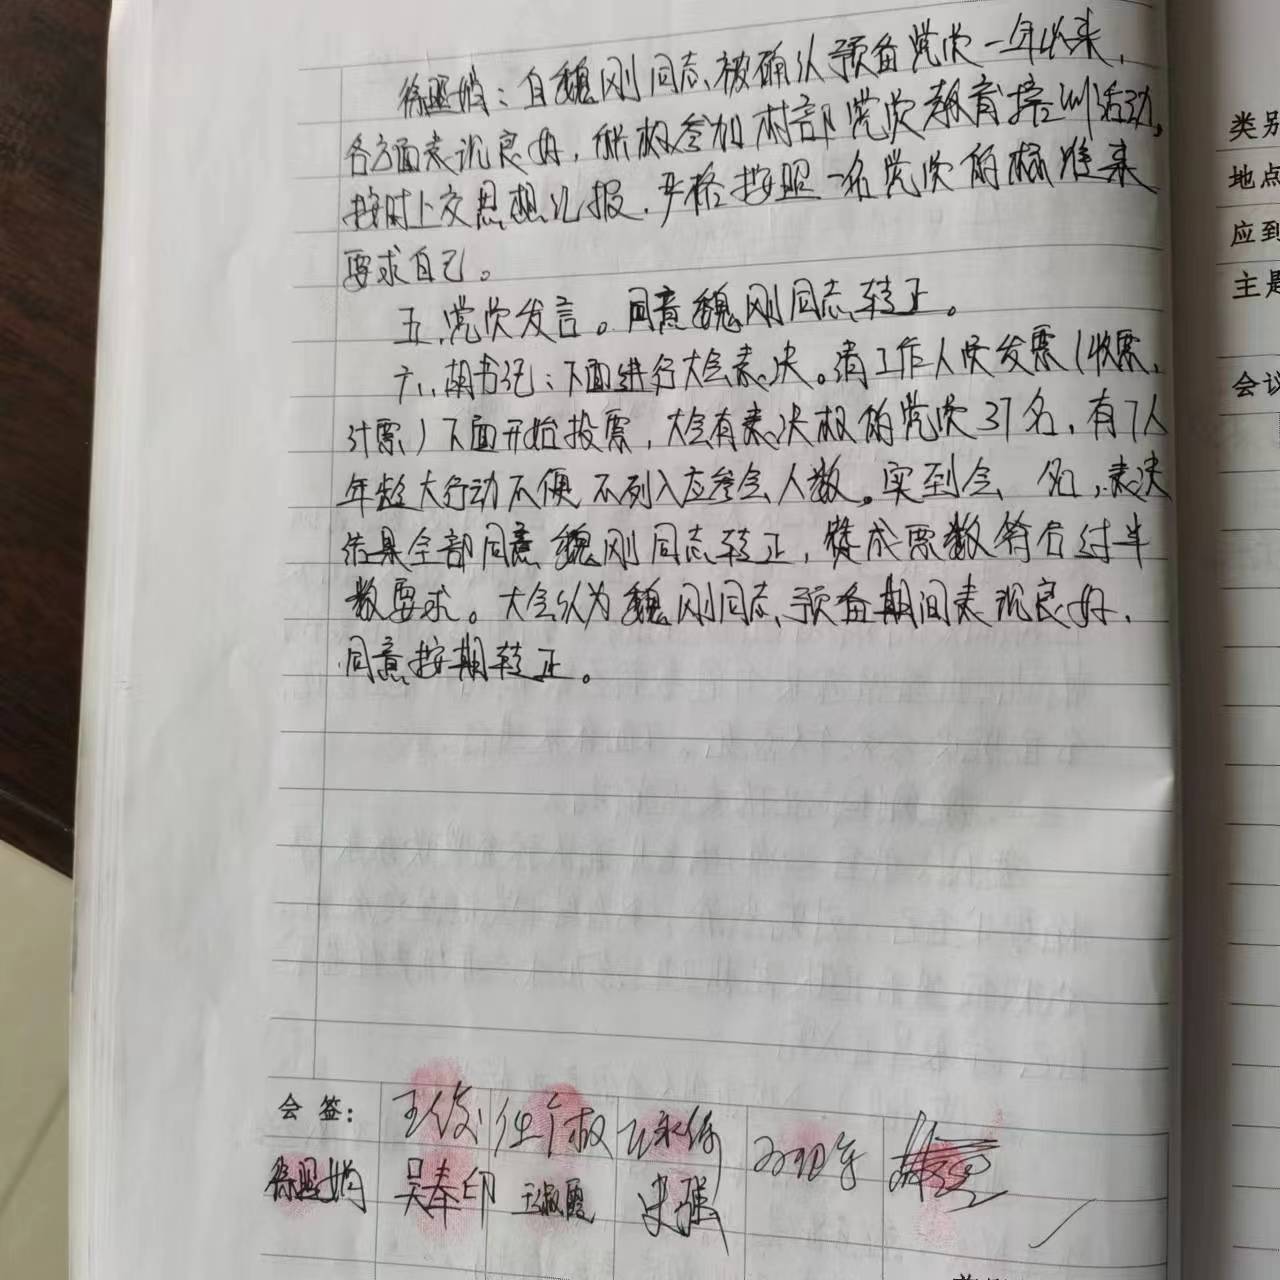 徐照娟：自魏刚同志被确认预备党员一年以来，
各方面表现良好，积极参加村部党员教育培训活动，
按时上交思想汇报，严格按照一名党员的标准来
要求自己。
五、党员发言。同意魏刚同志转正。
六、胡书记：下面进行大会表决。请工作人员发票（收票、
计票）下面开始投票，大会有表决权的党员37名，有7人
年龄大行动不便不列入应参会人数。实到会 名，表决
结果全部同意魏刚同志转正，赞成票数符合过半
数要求。大会认为魏刚同志预备期间表现良好，
同意按期转正。
会签：
徐照娟 吴奉印 史强
类别
地点
应到
主题
会议